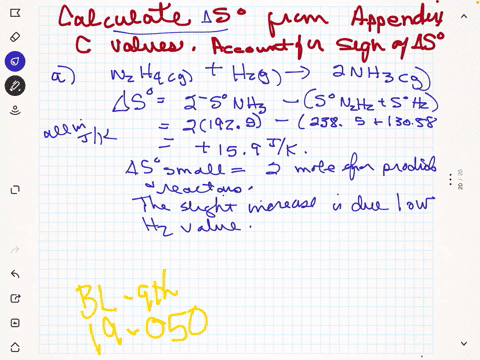 Calculate ΔS° from Appendix
C values. Account for sign of ΔS°
a) N2H4(g) + H2(g) → 2NH3(g)
ΔS° = 2 S° NH3 - (S° N2H2 + S° H2)
all in J/K = 2(192.5) - (238.5 + 130.58
= + 15.9 J/K.
ΔS° small = 2 mole for prodids
+ reactans.
The slight increase is due low
H2 value.
BL - 9th
19-050
20 / 20